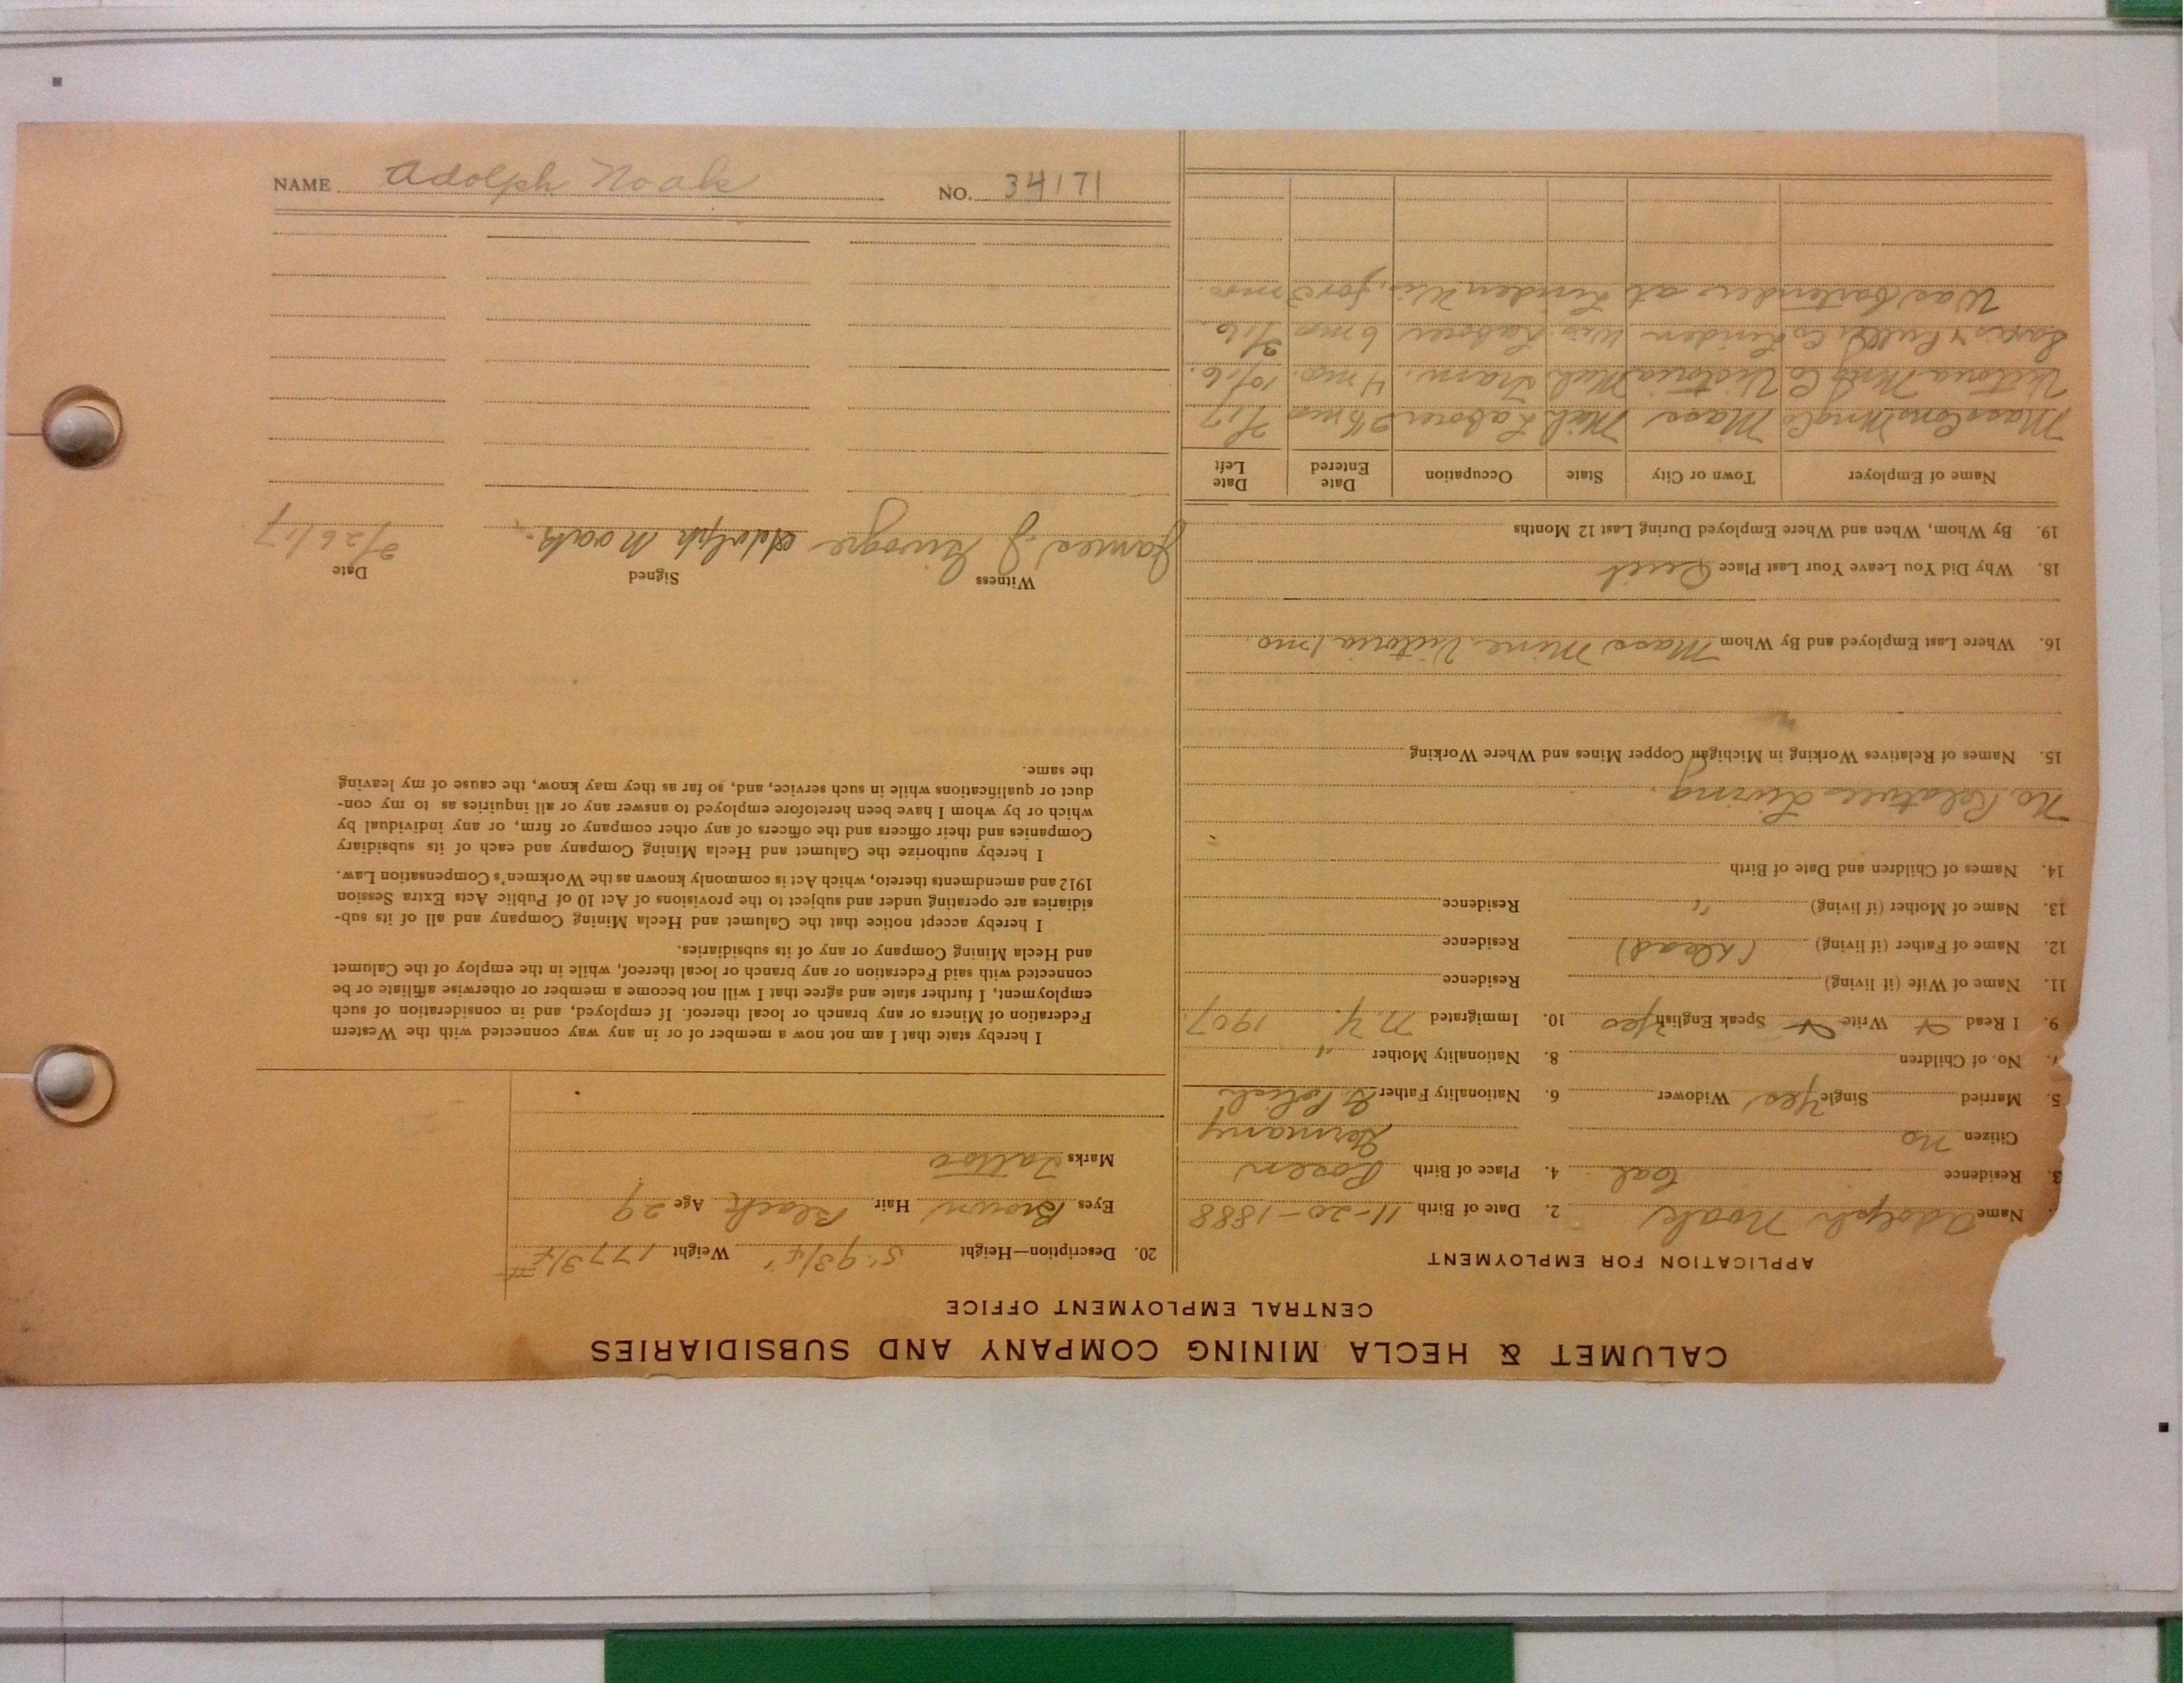 CALUMET & HECLA MINING COMPANY AND SUBSIDIARIES
CENTRAL EMPLOYMENT OFFICE
APPLICATION FOR EMPLOYMENT
Name Adolph Noak 2. Date of Birth 11-20-1888
3. Residence 4. Place of Birth Posen
Citizen no Germany
5. Married Single Yes Widower 6. Nationality Father G. Polish
No. of Children 8. Nationality Mother "
9. I Read Write Speak English Yes 10. Immigrated N.Y. 1907
11. Name of Wife (if living) Residence
12. Name of Father (if living) (Dead) Residence
13. Name of Mother (if living) " Residence
14. Names of Children and Date of Birth
No. Relatives Living.
15. Names of Relatives Working in Michigan Copper Mines and Where Working
no
16. Where Last Employed and By Whom Mass Mine, Victoria 1 mo.
18. Why Did You Leave Your Last Place Quit
19. By Whom, When and Where Employed During Last 12 Months
Name of Employer Town or City State Occupation Date Entered Date Left
Mass Cons Mng Co Mass Mich Laborer 2½ mos 2/17
Victoria Mng Co Victoria Mich Tram. 4 mos. 10/16.
Co Linden Wis. Laborer 6 mo 3/16.
Was bartender at Linden Wis, for 3 mos.
20. Description—Height 5' 9 3/4" Weight 177 3/4 #
Eyes Brown Hair Black Age 29
Marks Tattoo
I hereby state that I am not now a member of or in any way connected with the Western
Federation of Miners or any branch or local thereof. If employed, and in consideration of such
employment, I further state and agree that I will not become a member or otherwise affiliate or be
connected with said Federation or any branch or local thereof, while in the employ of the Calumet
and Hecla Mining Company or any of its subsidiaries.
I hereby accept notice that the Calumet and Hecla Mining Company and all of its sub-
sidiaries are operating under and subject to the provisions of Act 10 of Public Acts Extra Session
1912 and amendments thereto, which Act is commonly known as the Workmen's Compensation Law.
I hereby authorize the Calumet and Hecla Mining Company and each of its subsidiary
Companies and their officers and the officers of any other company or firm, or any individual by
which or by whom I have been heretofore employed to answer any or all inquiries as to my con-
duct or qualifications while in such service, and, so far as they may know, the cause of my leaving
the same.
Witness Signed Date
James J. Adolph Noak. 2/26/17
NAME Adolph Noak NO. 34171